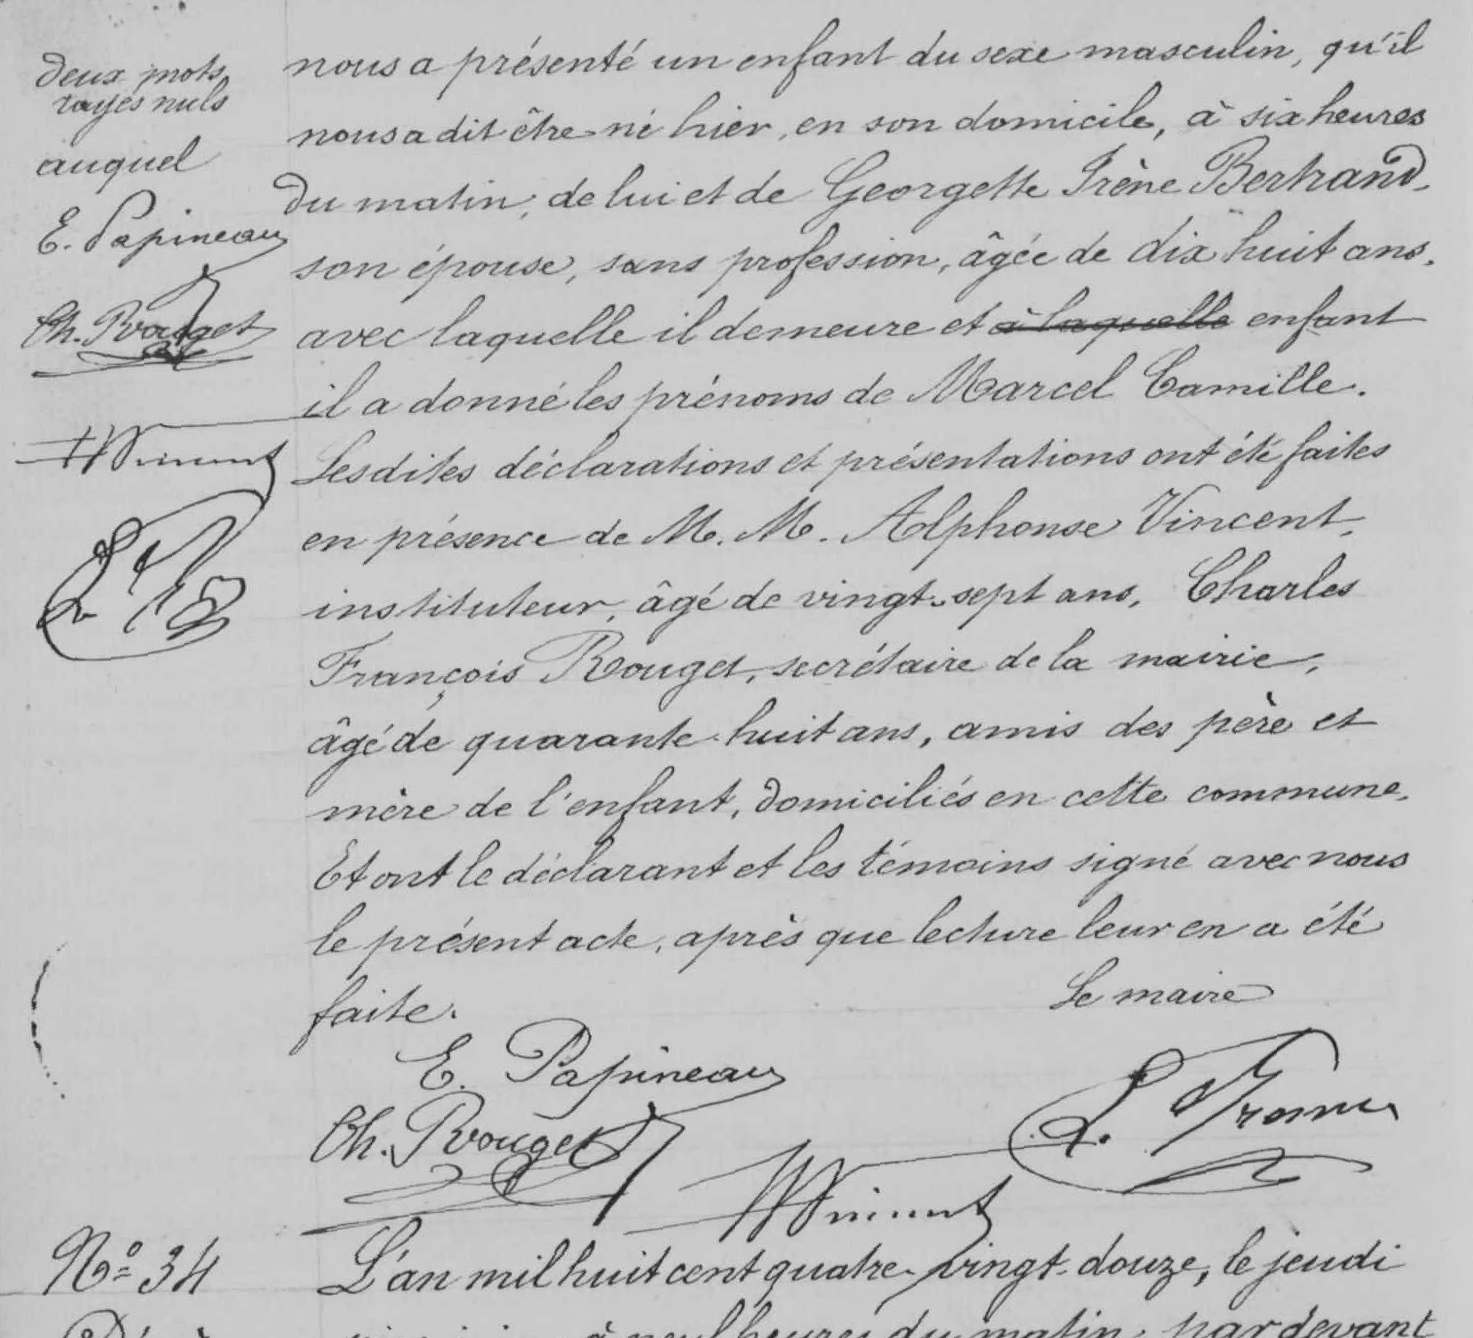 deux mots
rayés nuls
auquel
E. Papineau
Ch. Rouget
AVincent
nous a présenté un enfant du sexe masculin, qu'il
nous a dit être né hier, en son domicile, à six heures
du matin, de lui et de Georgette Irène Bertrand,
son épouse, sans profession, âgée de dix huit ans,
avec laquelle il demeure et à laquelle enfant
il a donné les prénoms de Marcel Camille.
Lesdites déclarations et présentations ont été faites
en présence de M. M. Alphonse Vincent,
instituteur, âgé de vingt-sept ans, Charles
François Rouget, secrétaire de la mairie,
âgé de quarante-huit ans, amis des père et
mère de l'enfant, domiciliés en cette commune.
Et ont le déclarant et les témoins signé avec nous
le présent acte, après que lecture leur en a été
faite.
Le maire
E. Papineau
Ch. Rouget
AVincent
Nº 34
L'an mil huit cent quatre-vingt-douze, le jeudi
à neuf heures du matin, par devant